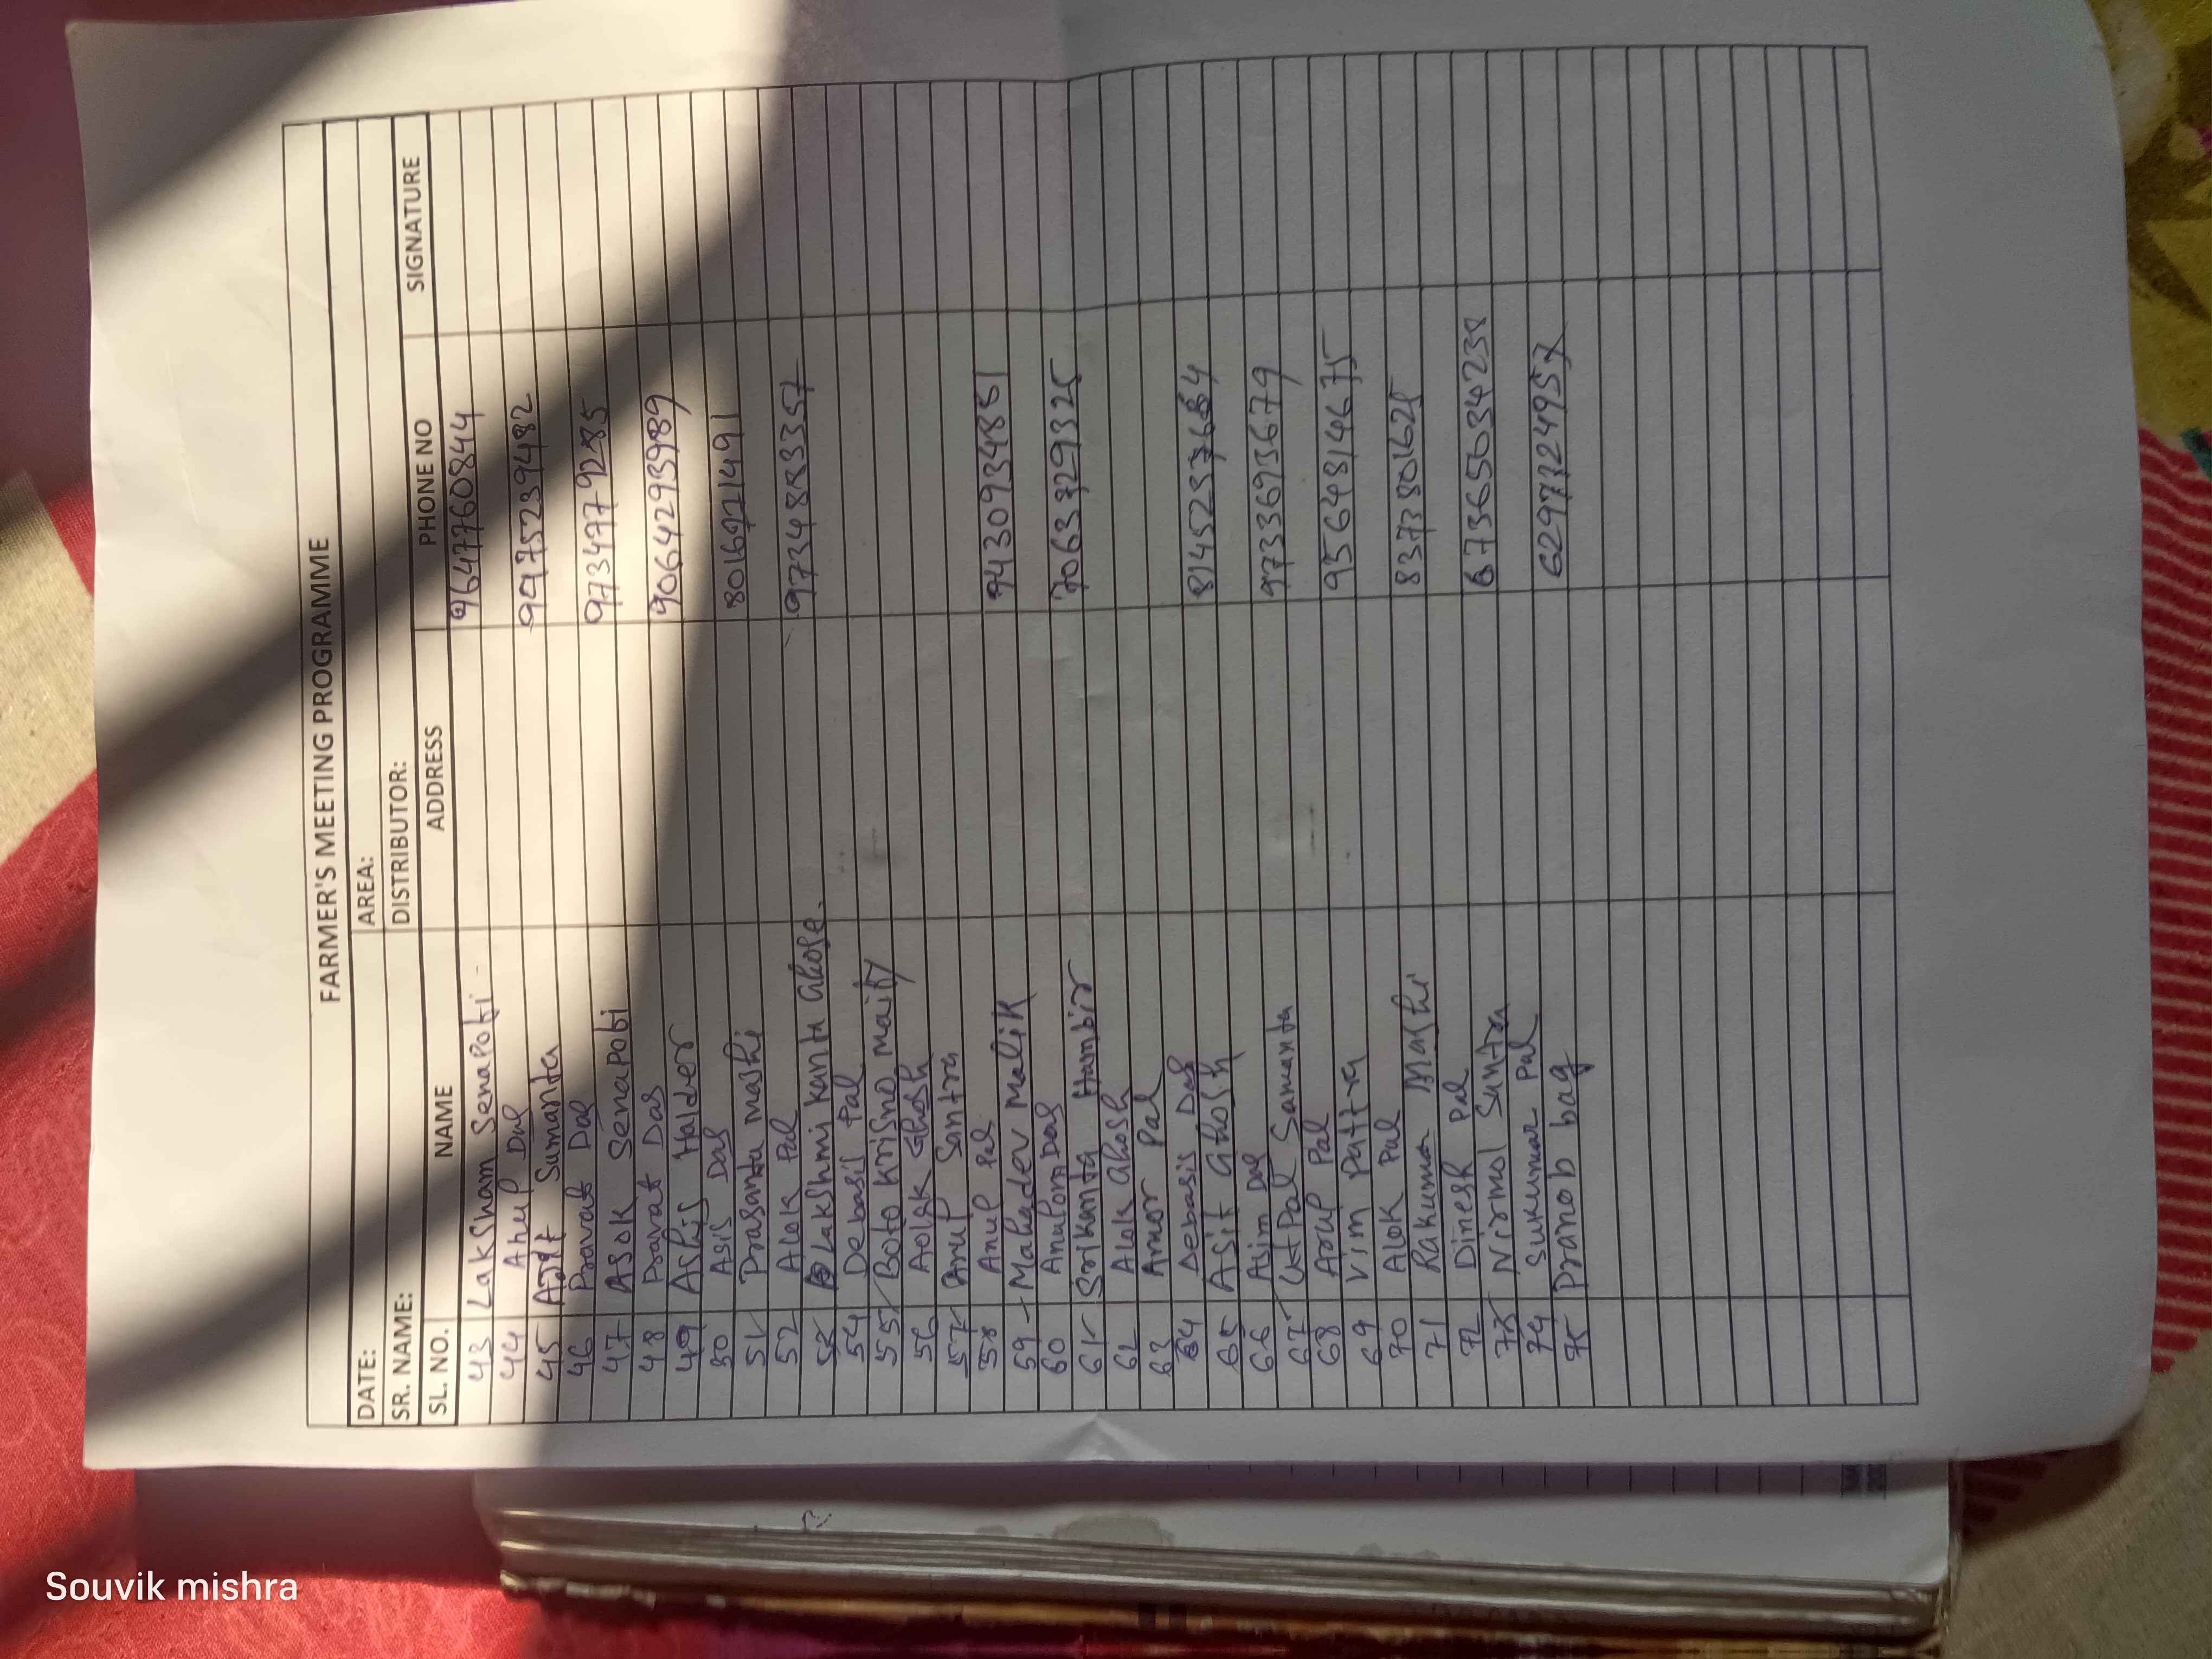 FARMER'S MEETING PROGRAMME
DATE: AREA:
SR. NAME: DISTRIBUTOR:
SL. NO. NAME ADDRESS PHONE NO SIGNATURE
43 Laksham Senapoti 9647760844
44 Anup Das
45 Sumanta 9475239482
46 Pravat Das 9734779285
47 Asok Senapoti
48 Pravat Das 9064293989
49 Ashis Halder
50 Asis Das 8016221491
51 Prasanta mashi
52 Alok Pal 9734883357
53 Lakshmi kanta Ghose.
54 Debasis Pal
55 Boto krisno maity
56 Aolsk Ghosh
57 Arup Santra
58 Anup Pal 9430934861
59 Mahadev Malik
60 Anulom Das 7063329325
61 Srikanta Hambir
62 Alok Ghosh
63 Amor Pal
64 Debasis Das 8145237664
65 Asit Ghosh
66 Asim Das 9733693679
67 Utpal Samanta
68 Arup Pal 9564814675
69 Vim Pattra
70 Alok Pal 8373801625
71 Rakumar Mashi
72 Dinesh Pal 67365034238
73 Nirmol Suntra
74 Sukumar Pal 6297324957
75 Pranob bag
Souvik mishra